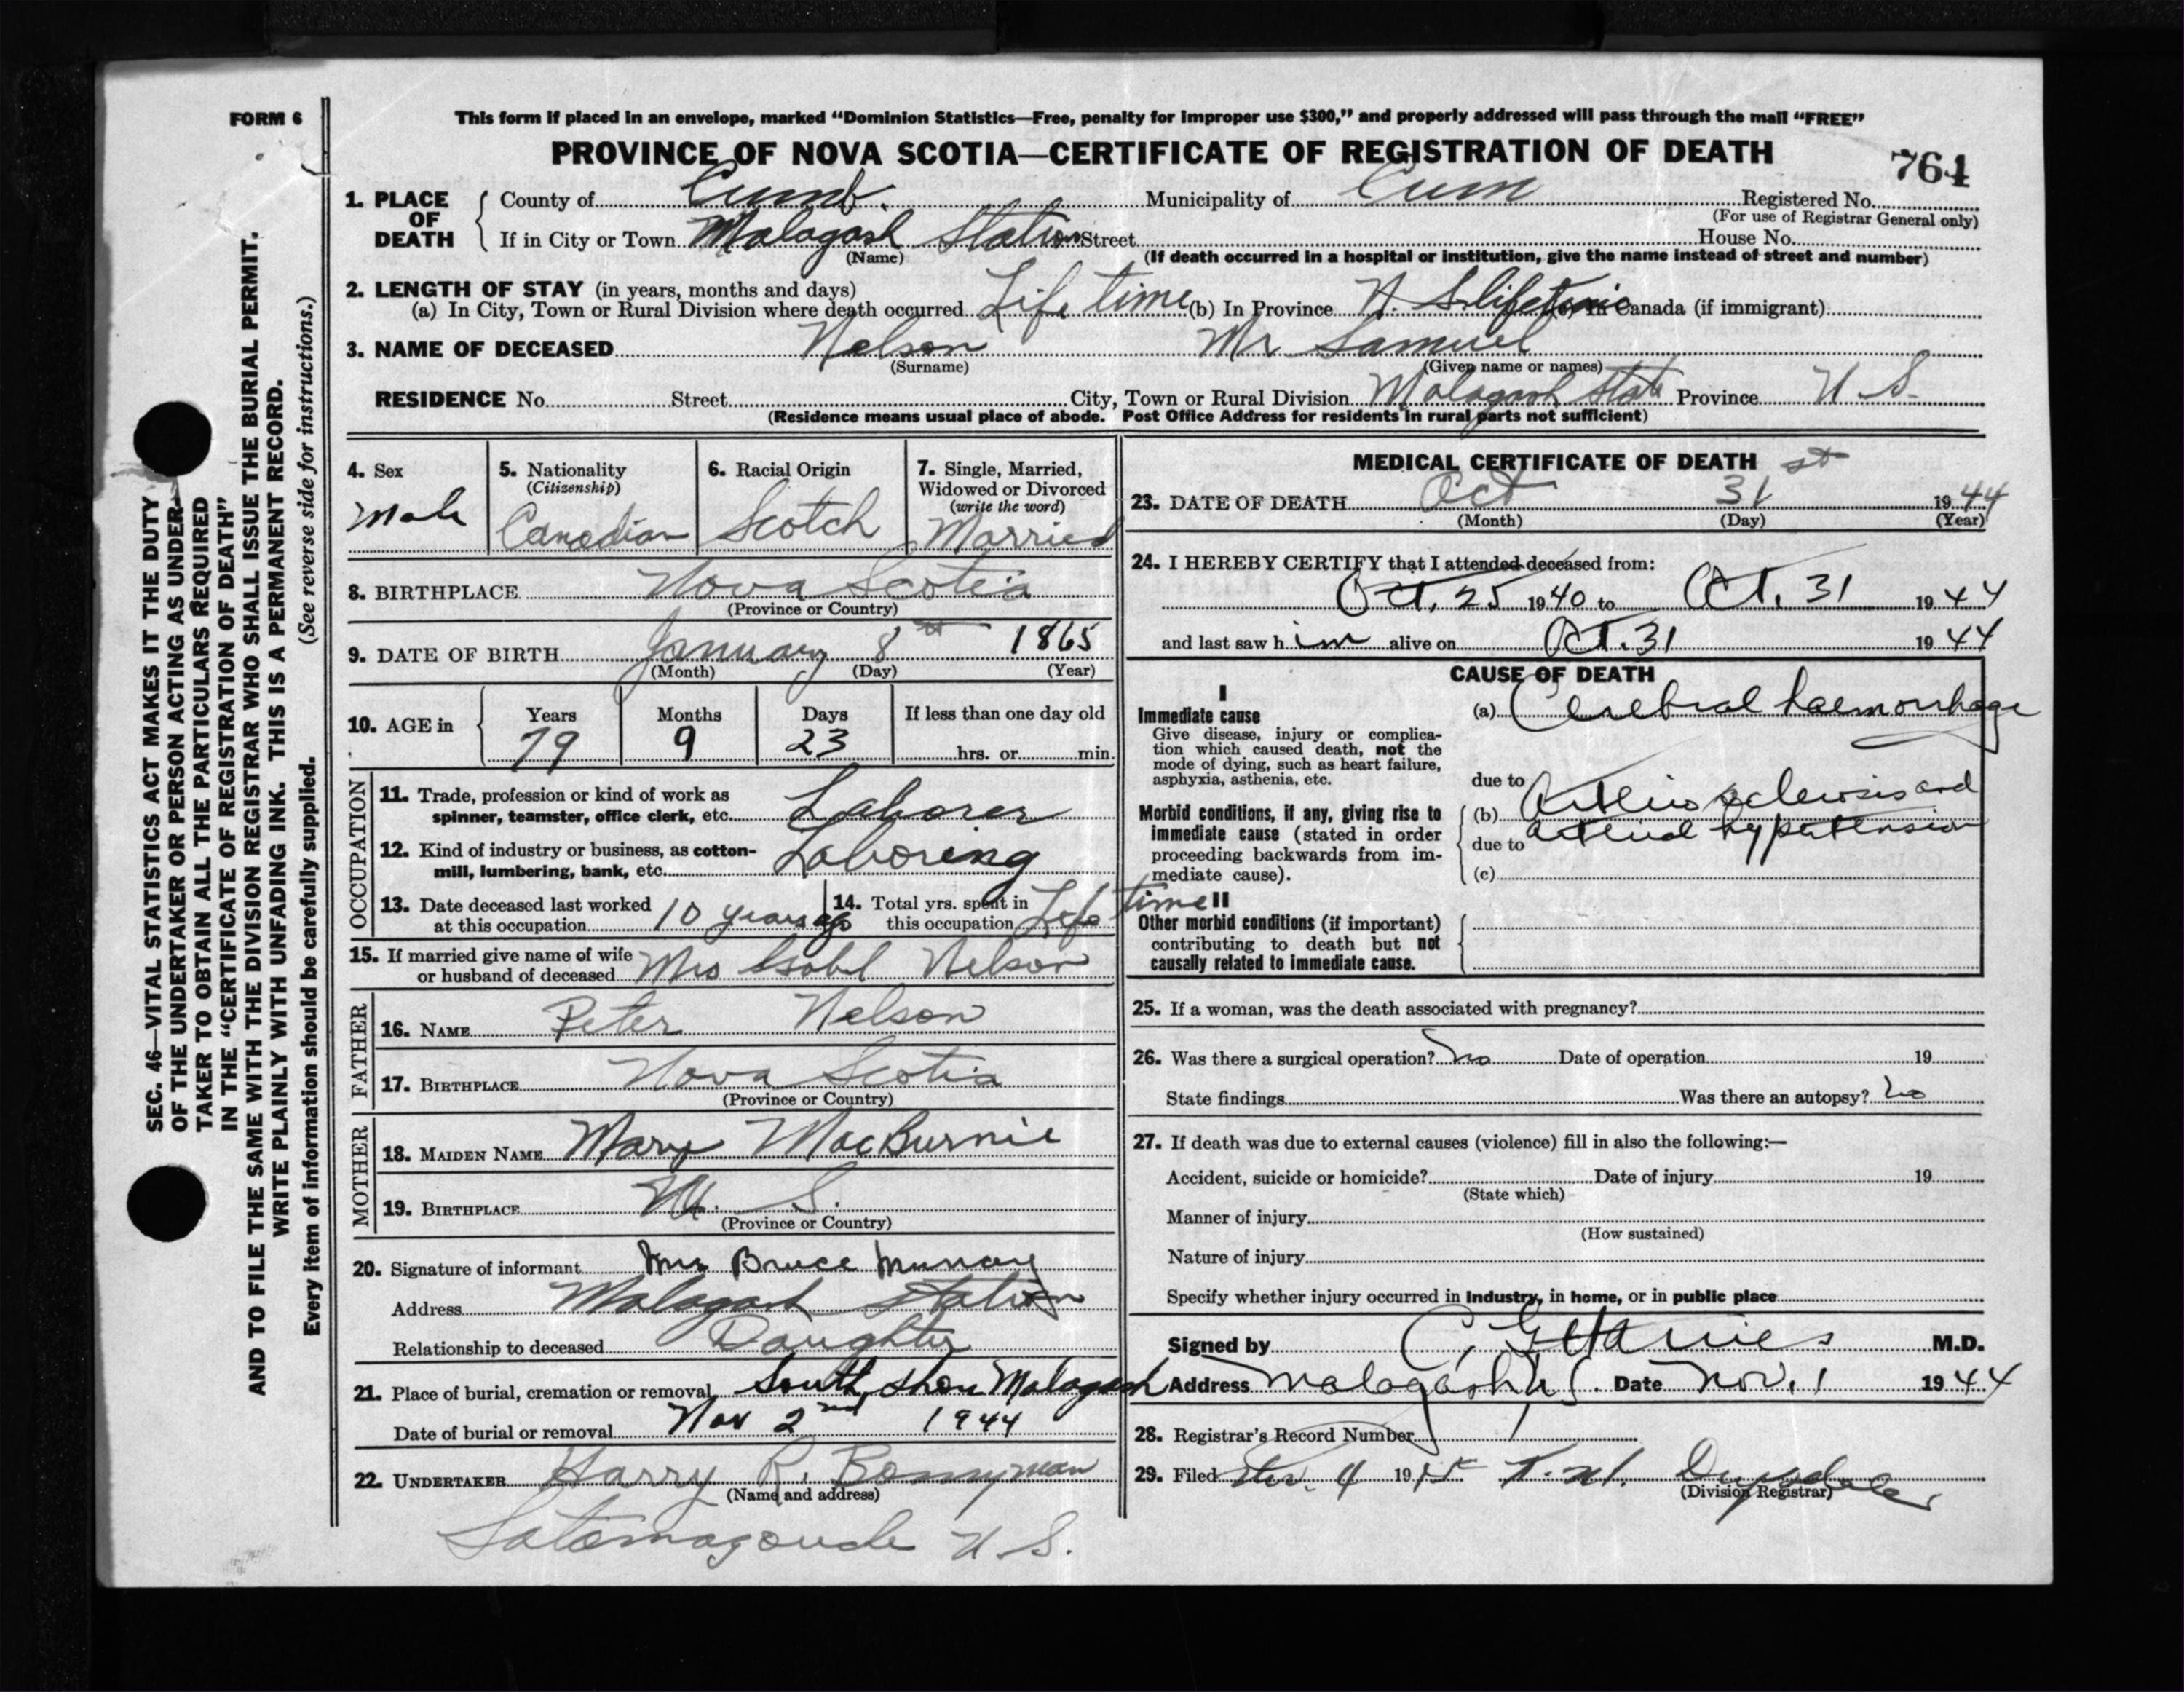 FORM 6
This form if placed in an envelope, marked "Dominion Statistics—Free, penalty for improper use $300," and properly addressed will pass through the mail "FREE"
PROVINCE OF NOVA SCOTIA—CERTIFICATE OF REGISTRATION OF DEATH
764
1. PLACE OF DEATH County of Cumb. Municipality of Cum Registered No.
(For use of Registrar General only)
If in City or Town Malagash Station Street House No.
(Name) (If death occurred in a hospital or institution, give the name instead of street and number)
2. LENGTH OF STAY (in years, months and days)
(a) In City, Town or Rural Division where death occurred Life time (b) In Province N. S. lifetime (c) In Canada (if immigrant)
3. NAME OF DECEASED Nelson Mr Samuel
(Surname) (Given name or names)
RESIDENCE No. Street City, Town or Rural Division Malagash Stat Province N. S.
(Residence means usual place of abode. Post Office Address for residents in rural parts not sufficient)
SEC. 46—VITAL STATISTICS ACT MAKES IT THE DUTY
OF THE UNDERTAKER OR PERSON ACTING AS UNDER-
TAKER TO OBTAIN ALL THE PARTICULARS REQUIRED
IN THE "CERTIFICATE OF REGISTRATION OF DEATH"
AND TO FILE THE SAME WITH THE DIVISION REGISTRAR WHO SHALL ISSUE THE BURIAL PERMIT.
WRITE PLAINLY WITH UNFADING INK. THIS IS A PERMANENT RECORD.
Every item of information should be carefully supplied. (See reverse side for instructions.)
4. Sex
Male
5. Nationality
(Citizenship)
Canadian
6. Racial Origin
Scotch
7. Single, Married,
Widowed or Divorced
(write the word)
Married
8. BIRTHPLACE Nova Scotia
(Province or Country)
9. DATE OF BIRTH January 8th 1865
(Month) (Day) (Year)
10. AGE in Years Months Days If less than one day old
79 9 23 hrs. or min.
OCCUPATION
11. Trade, profession or kind of work as
spinner, teamster, office clerk, etc. Laborer
12. Kind of industry or business, as cotton-
mill, lumbering, bank, etc. Laboring
13. Date deceased last worked
at this occupation 10 years ago
14. Total yrs. spent in
this occupation Life time
15. If married give name of wife
or husband of deceased Mrs Isobel Nelson
FATHER
16. NAME Peter Nelson
17. BIRTHPLACE Nova Scotia
(Province or Country)
MOTHER
18. MAIDEN NAME Mary MacBurnie
19. BIRTHPLACE N. S.
(Province or Country)
20. Signature of informant Mrs Bruce Murray
Address Malagash Station
Relationship to deceased Daughter
21. Place of burial, cremation or removal South Shore Malagash
Date of burial or removal Nov 2nd 1944
22. UNDERTAKER Harry R. Bonnyman
(Name and address)
Tatamagouche N. S.
MEDICAL CERTIFICATE OF DEATH
23. DATE OF DEATH Oct 31st 1944
(Month) (Day) (Year)
24. I HEREBY CERTIFY that I attended deceased from:
Oct. 25 1940 to Oct. 31 1944
and last saw him alive on Oct. 31 1944
CAUSE OF DEATH
I
Immediate cause
Give disease, injury or complica-
tion which caused death, not the
mode of dying, such as heart failure,
asphyxia, asthenia, etc.
(a) Cerebral haemorrhage
due to
Morbid conditions, if any, giving rise to
immediate cause (stated in order
proceeding backwards from im-
mediate cause).
(b) Arterio sclerosis and
due to arterial hypertension
(c)
II
Other morbid conditions (if important)
contributing to death but not
causally related to immediate cause.
25. If a woman, was the death associated with pregnancy?
26. Was there a surgical operation? No Date of operation 19
State findings Was there an autopsy? No
27. If death was due to external causes (violence) fill in also the following:—
Accident, suicide or homicide? Date of injury 19
(State which)
Manner of injury
(How sustained)
Nature of injury
Specify whether injury occurred in Industry, in home, or in public place
Signed by C. G. M.D.
Address Malagash, N.S. Date Nov. 1 1944
28. Registrar's Record Number
29. Filed Nov. 4 19
(Division Registrar)